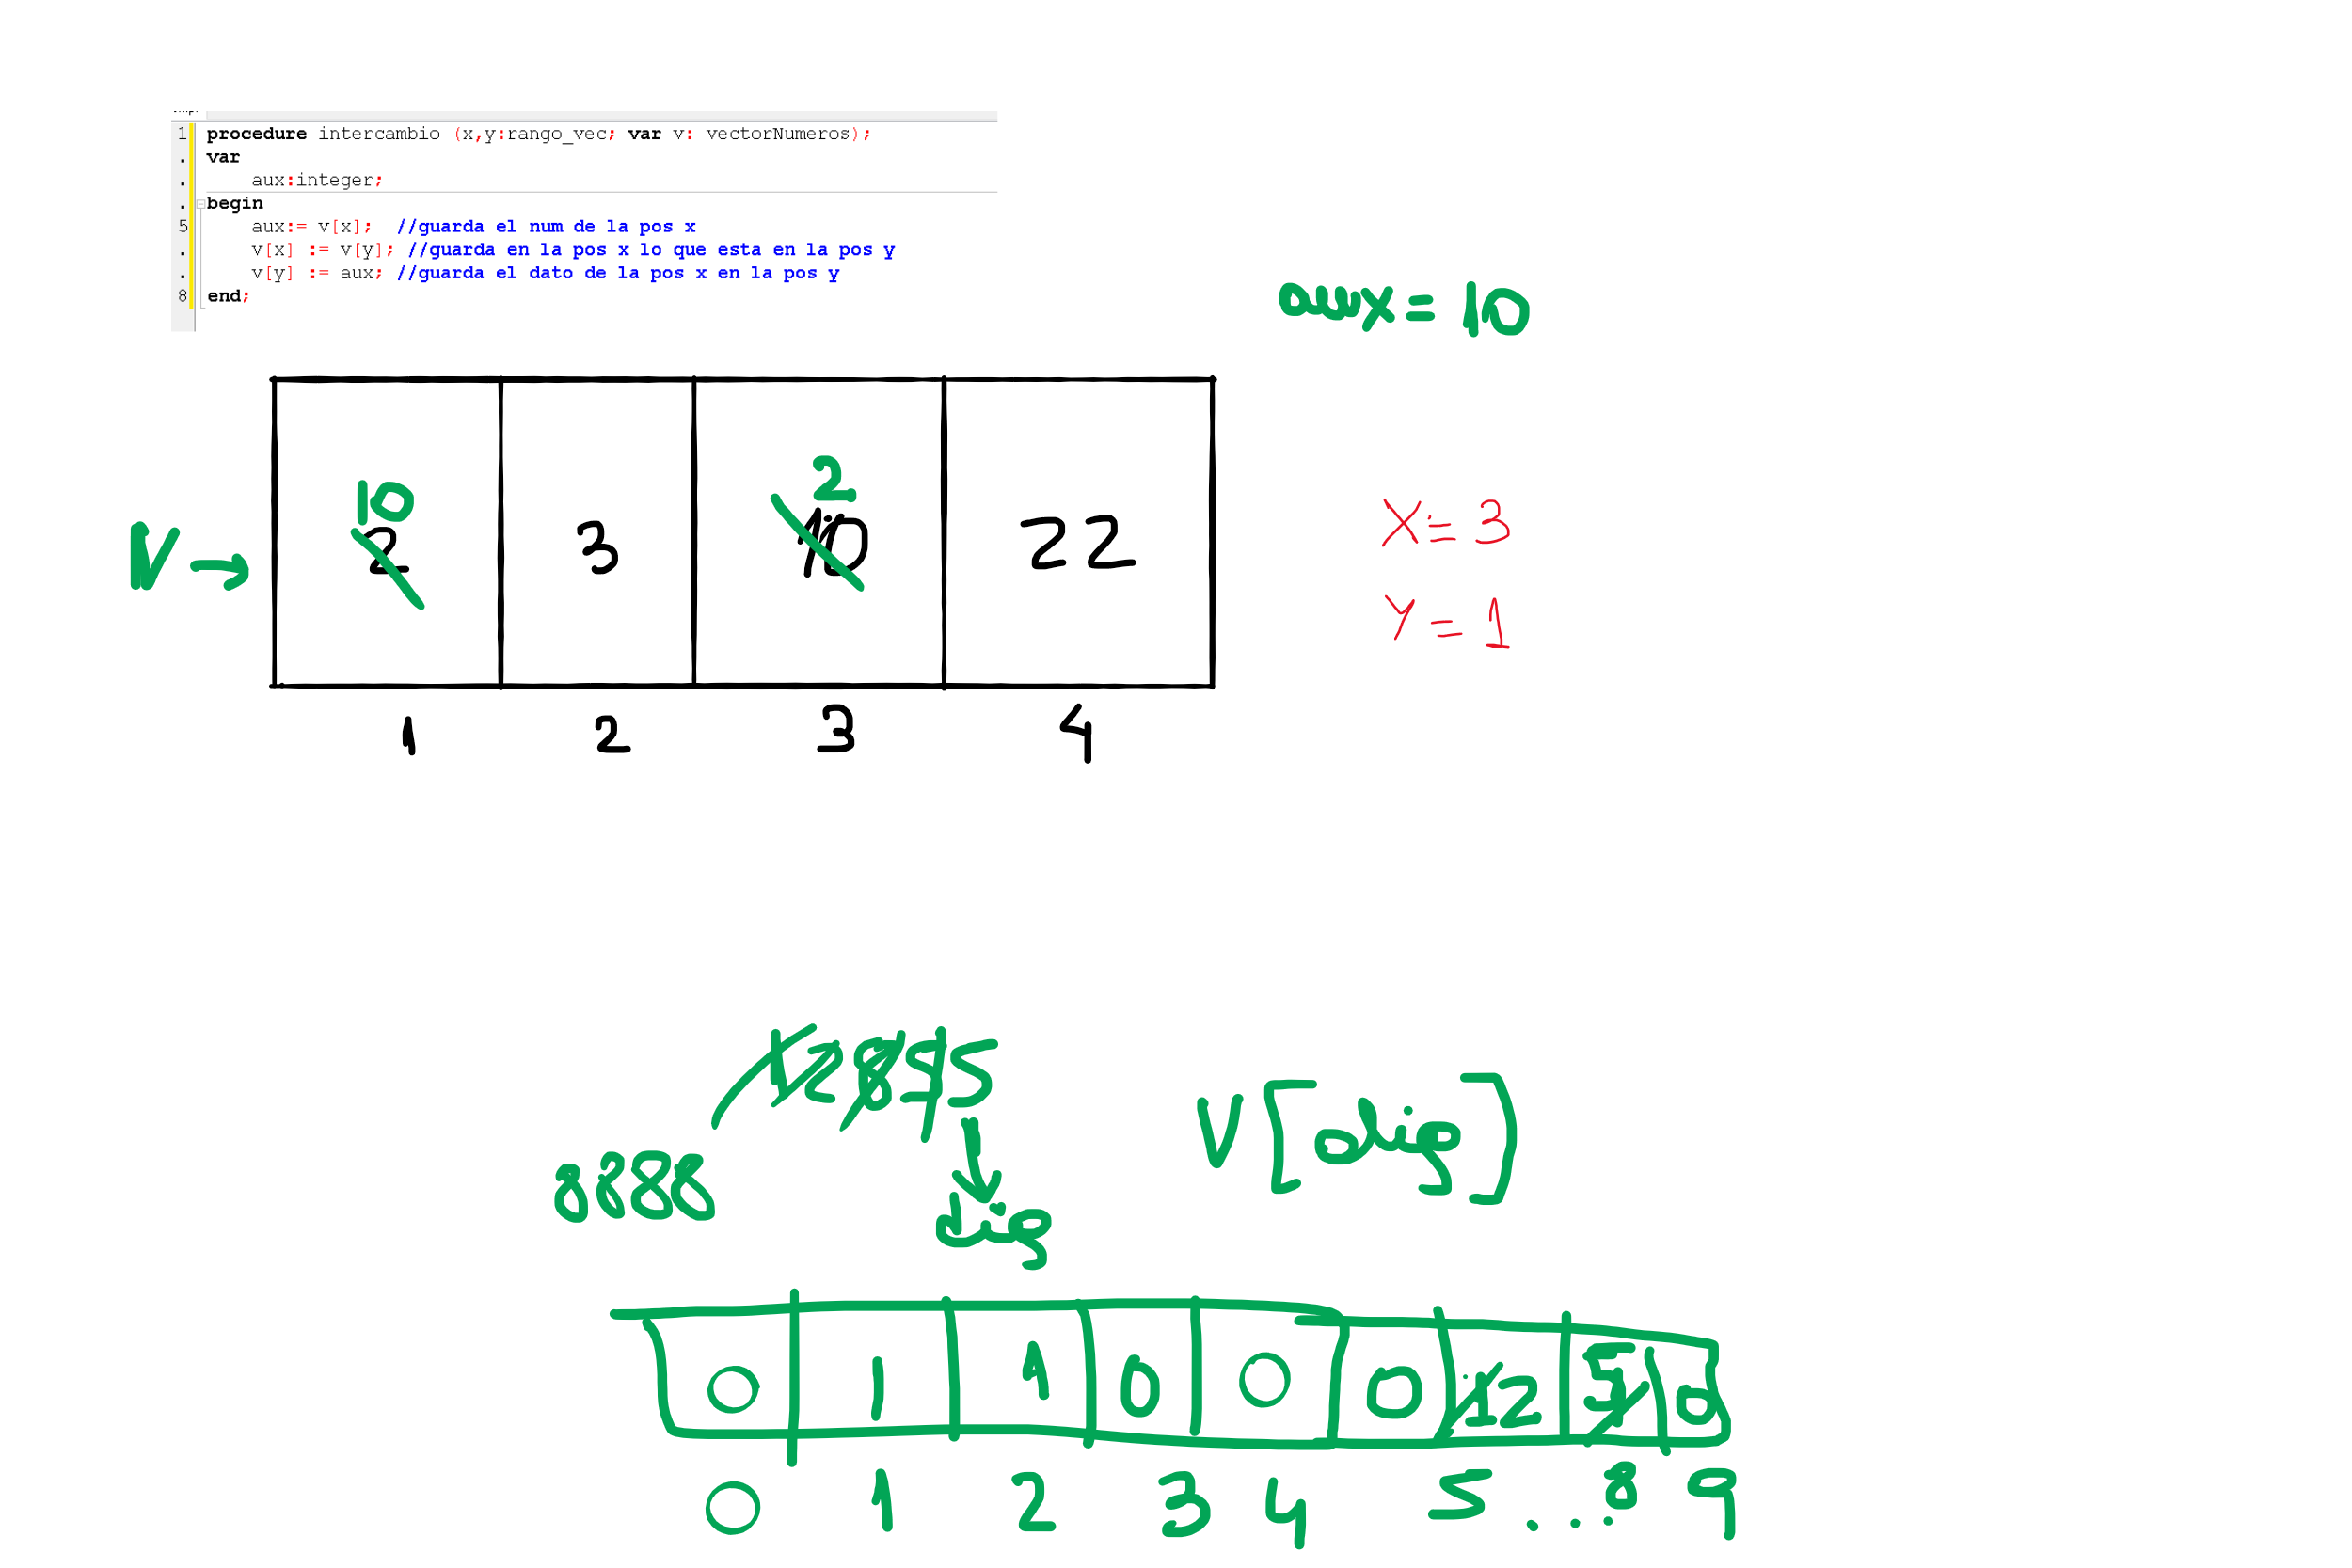 1 procedure intercambio (x,y:rango_vec; var v: vectorNumeros);
. var
. aux:integer;
. begin
5 aux:= v[x]; //guarda el num de la pos x
. v[x] := v[y]; //guarda en la pos x lo que esta en la pos y
. v[y] := aux; //guarda el dato de la pos x en la pos y
8 end;
aux = 10
10 2
V → 2 3 10 22
X = 3
Y = 1
1 2 3 4
12855
8888
dig
V[dig]
0 1 1 0 0 0 1 2 0
0 1 2 3 4 5 ... 8 9